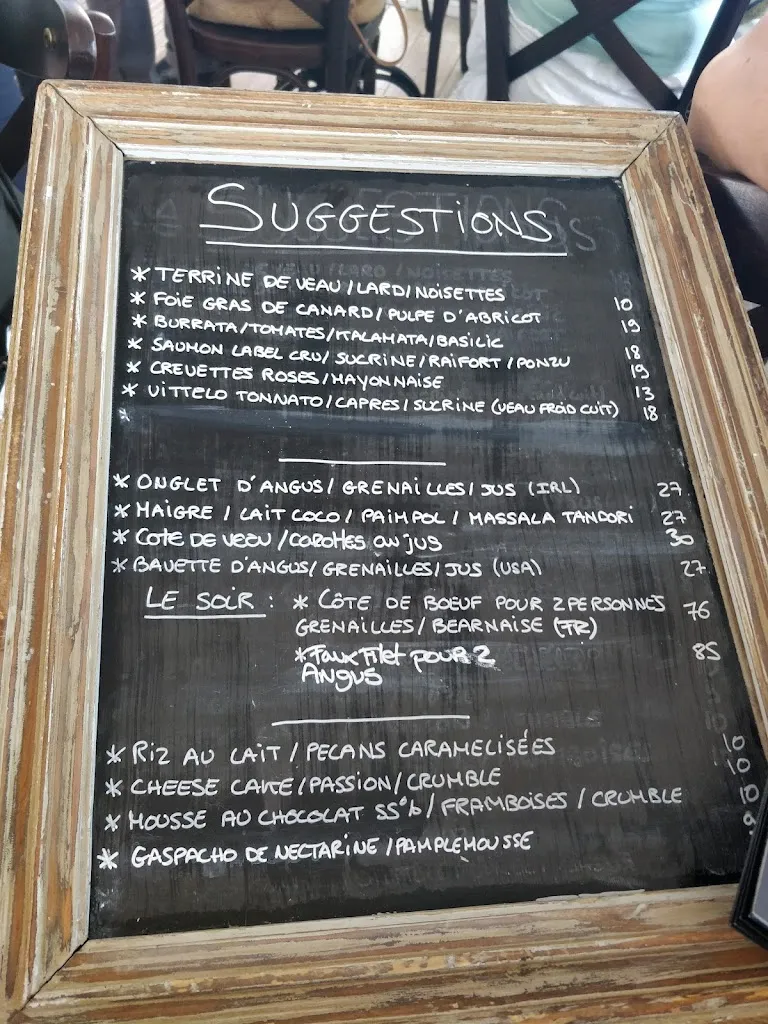 SUGGESTIONS
* TERRINE DE VEAU / LARD / NOISETTES 10
* FOIE GRAS DE CANARD / PULPE D'ABRICOT 19
* BURRATA / TOMATES / KALAMATA / BASILIC 18
* SAUMON LABEL CRU / SUCRINE / RAIFORT / PONZU 19
* CREVETTES ROSES / MAYONNAISE 13
* VITTELO TONNATO / CAPRES / SUCRINE (VEAU FROID CUIT) 18
* ONGLET D'ANGUS / GRENAILLES / JUS (IRL) 27
* MAIGRE / LAIT COCO / PAIMPOL / MASSALA TANDORI 27
* Cote DE veau / carottes au jus 30
* BAVETTE D'ANGUS / GRENAILLES / JUS (USA) 27
LE SOIR : * CÔTE DE BOEUF POUR 2 PERSONNES 76
GRENAILLES / BEARNAISE (FR)
* Faux Filet pour 2 85
Angus
* RIZ AU LAIT / PECANS CARAMELISÉES 10
* CHEESE CAKE / PASSION / CRUMBLE 10
* MOUSSE AU CHOCOLAT 55% / FRAMBOISES / CRUMBLE 10
* GASPACHO DE NECTARINE / PAMPLEMOUSSE 9